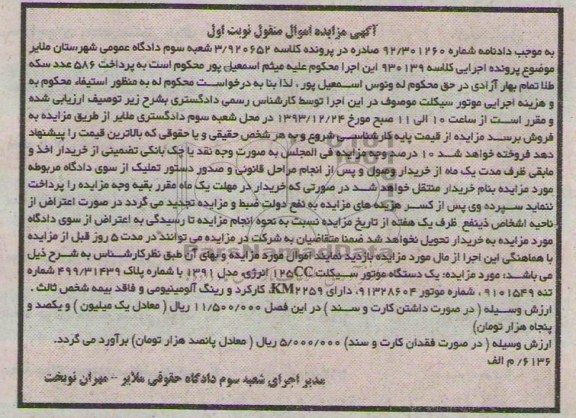 آگهی مزایده اموال منقول نوبت اول
به موجب دادنامه شماره ۹۲/۳۰۱۲۶۰ صادره در پرونده کلاسه ۳/۹۲۰۶۵۲ شعبه سوم دادگاه عمومی شهرستان ملایر
موضوع پرونده اجرایی کلاسه ۹۳۰۱۳۹ این اجرا محکوم علیه میثم اسمعیل پور محکوم است به پرداخت ۵۸۶ عدد سکه
طلا تمام بهار آزادی در حق محکوم له ونوس اسـمعیل پور ، لذا بنا به درخواست محکوم له به منظور استیفاء محکوم به
و هزینه اجرایی موتور سیکلت موصوف در این اجرا توسط کارشناس رسمی دادگستری بشرح زیر توصیف ارزیابی شده
و مقرر است از ساعت ۱۰ الی ۱۱ صبح مورخ ۱۳۹۳/۱۲/۲۴ در محل شعبه سوم دادگستری ملایر از طریق مزایده به
فروش برسد مزایده از قیمت پایه کارشناسی شروع و به هر شخص حقیقی و یا حقوقی که بالاترین قیمت را پیشنهاد
دهد فروخته خواهد شد ۱۰ درصد وجه مزایده فی المجلس به صورت وجه نقد یا چک بانکی تضمینی از خریدار اخذ و
مابقی ظرف مدت یک ماه از خریدار وصول و پس از انجام مراحل قانونی و صدور دستور تملیک از سوی دادگاه مربوطه
مورد مزایده بنام خریدار منتقل خواهد شد در صورتی که خریدار در مهلت یک ماه مقرر بقیه وجه مزایده را پرداخت
ننماید سپرده وی پس از کسر هزینه های مزایده به نفع دولت ضبط و مزایده تجدید می گردد در صورت اعتراض از
ناحیه اشخاص ذینفع ظرف یک هفته از تاریخ مزایده نسبت به نحوه انجام مزایده تا رسیدگی به اعتراض از سوی دادگاه
مورد مزایده به خریدار تحویل نخواهد شد ضمنا متقاضیان به شرکت در مزایده می توانند در مدت ۵ روز قبل از مزایده
با هماهنگی این اجرا از مال مورد مزایده بازدید نمایند اموال مورد مزایده و بهای آن طبق نظرکارشناس به شرح ذیل
می باشد: مورد مزایده: یک دستگاه موتور سیکلت ۱۲۵CC انرژی، مدل ۱۳۹۱ با شماره پلاک ۴۹۹/۳۱۴۳۹ شماره
تنه ۹۱۰۱۵۴۹ ، شماره موتور ۹۱۳۲۸۶۰۴، دارای KM۲۲۵۹، کارکرد و رینگ آلومینیومی و فاقد بیمه شخص ثالث .
ارزش وسیله ( در صورت داشتن کارت و سند ) در این فصل ۱۱/۵۰۰/۰۰۰ ریال ( معادل یک میلیون ) و یکصد و
پنجاه هزار تومان)
ارزش وسیله ( در صورت فقدان کارت و سند) ۵/۰۰۰/۰۰۰ ریال ( معادل پانصد هزار تومان) برآورد می گردد.
۶۱۳۶/ م الف
مدیر اجرای شعبه سوم دادگاه حقوقی ملایر - مهران نوبخت